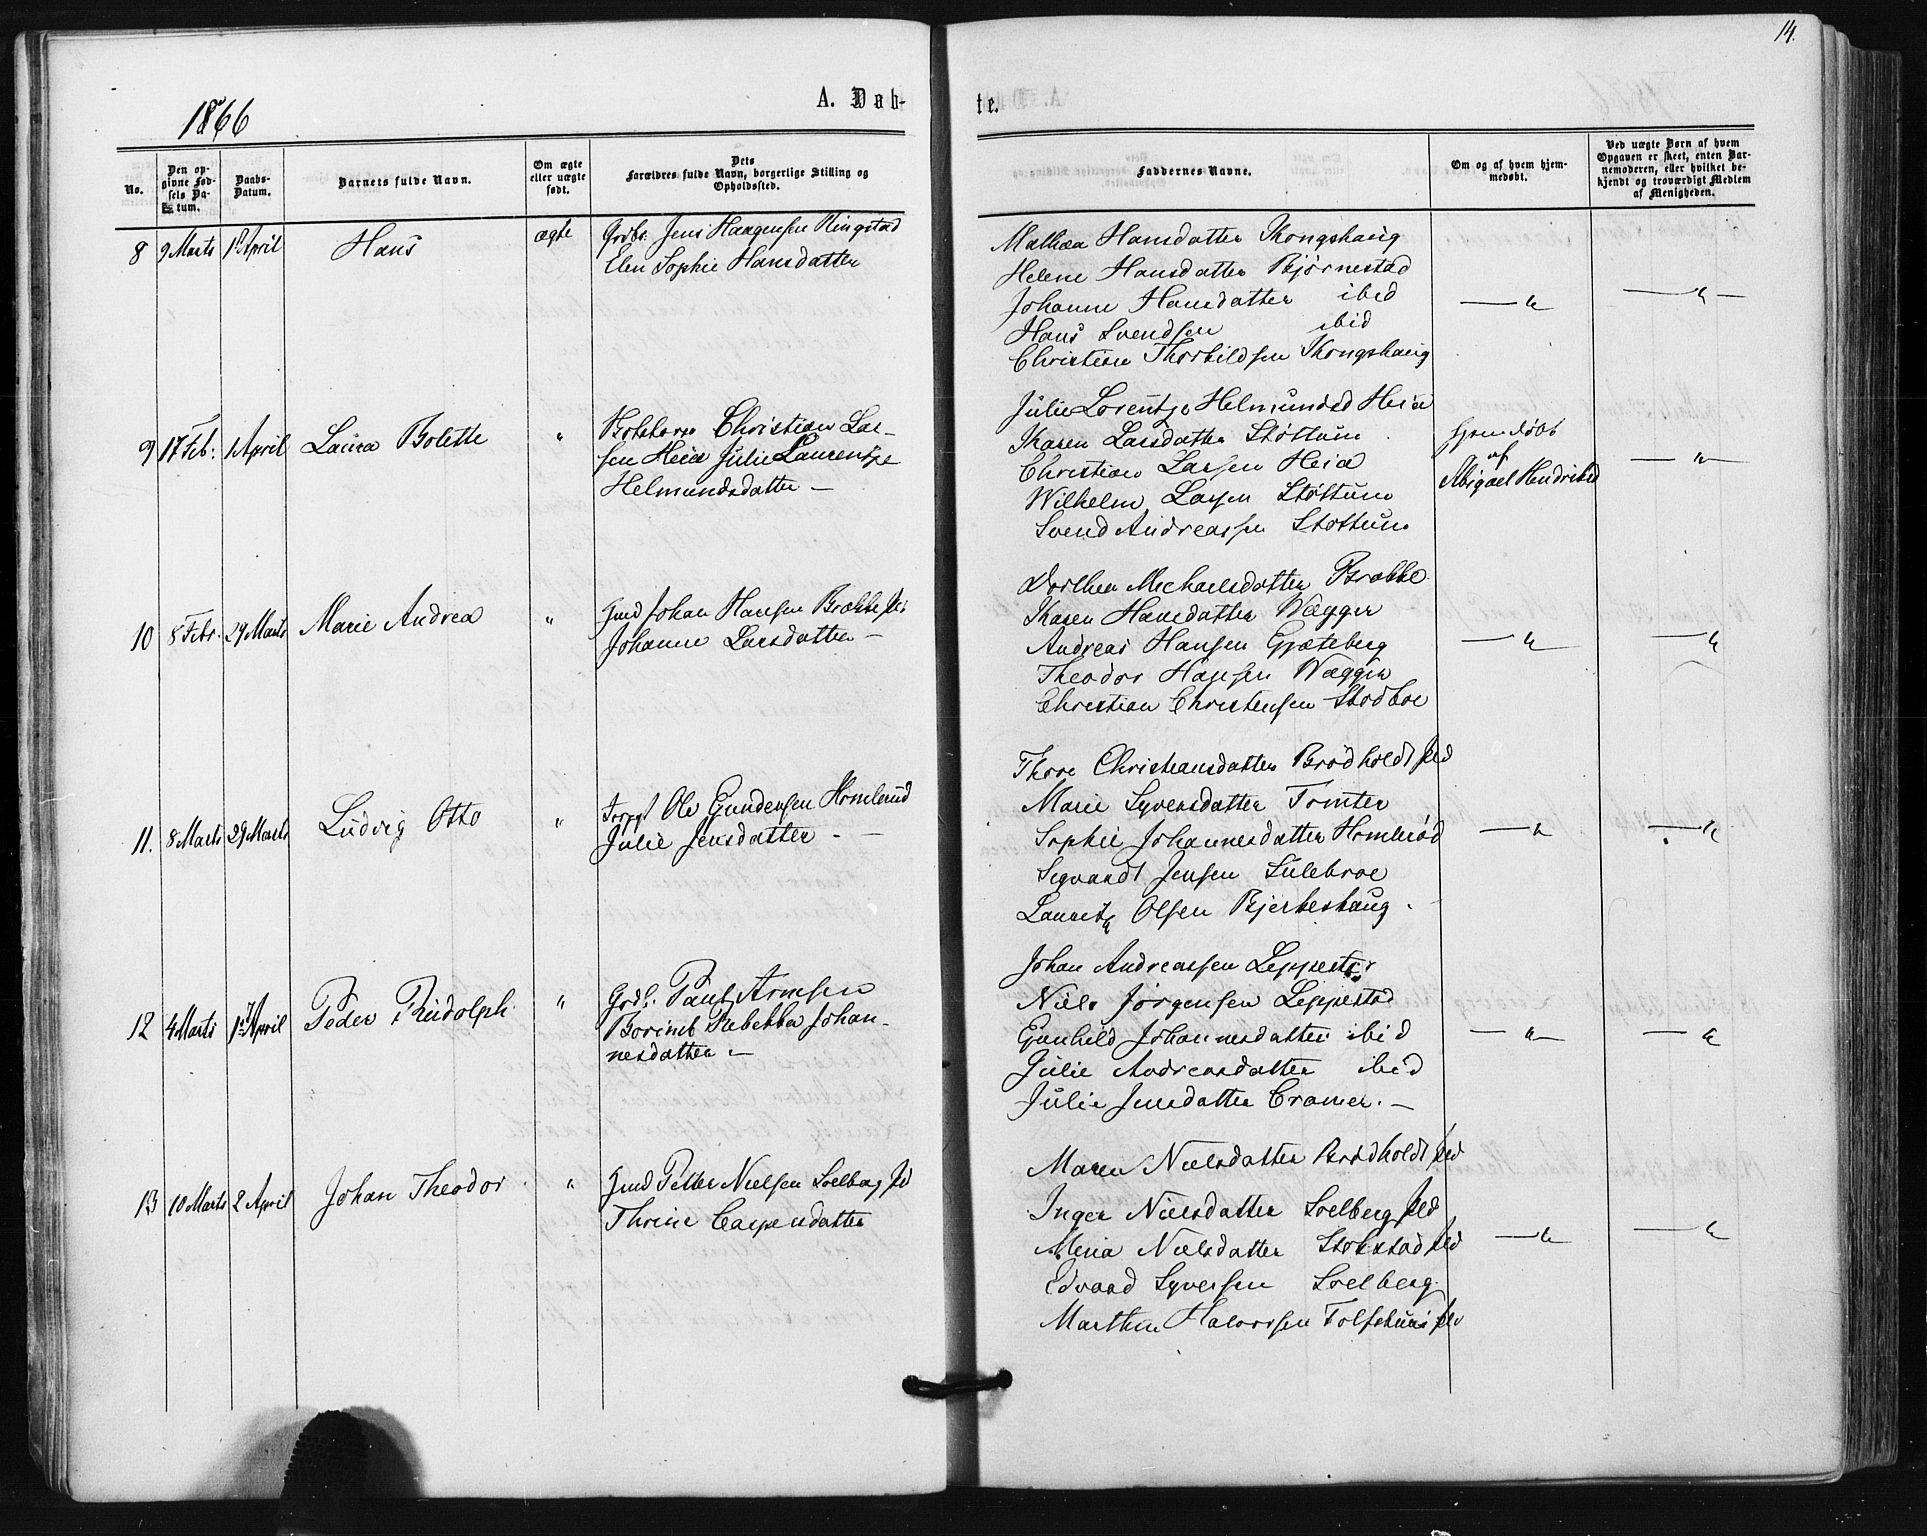 14.
1866
A. Døb-
te.
No.
Den op-
givne Fød-
sels Da-
tum.
Daabs-
Datum.
Barnets fulde Navn.
Om ægte
eller uægte
født.
Dets
Forældres fulde Navn, borgerlige Stilling og
Opholdssted.
Faddernes Navne.
Om og af hvem hjem-
medøbt.
Ved uægte Børn af hvem
Opgaven er skeet, enten Bar-
nemoderen, eller hvilket be-
kjendt og troværdigt Medlem
af Menigheden.
8 9 Marts 1 April Hans ægte Grdbr. Jens Haagensen Ringstad
Elen Sophie Hansdatter
Mathea Hansdatter Kongshaug
Helene Hansdatter Bjørnestad
Johanne Hansdatter ibid
Hans Svendsen ibid
Christian Thorkildsen Kongshaug
— " —
— " —
9 17 Feb: 1 April Laura Bolette " Christian Lar-
sen Heia Julie Laurentze
Helmundsdatter —
Julie Lorentze Helmundsd Heia
Karen Larsdatter Støttum
Christian Larsen Heia
Wilhelm Larsen Støttum
Svend Andreassen Støttum
Hjemdøbt
af
Abigael Hendriksd
— " —
10 8 Febr. 29 Marts Marie Andrea " Gmd Johan Hansen Brække
Johanne Larsdatter —
Dorthea Michaelsdatter Brække
Karen Hansdatter Wægger
Andreas Hansen Gjæteberg
Theodor Hansen Wægger
Christian Christensen Stodboe
— " —
— "
11. 8 Marts 29 Marts Ludvig Otto " Ole Gundersen Homlerud
Julie Jensdatter —
Thore Christiansdatter Brødholdt
Marie Syversdatter Tomter
Sophie Johannesdatter Homlerød
Segvardt Jensen Sulebroe
Lauritz Olsen Bjerkeshaug.
— "
— "
12 4 Marts 1 April Peder Rudolph " Grdb. Paul Arnesen
Borinet Rebekka Johan-
nesdatter —
Johan Andreassen Leppestad
Niels Jørgensen Leppestad
Gunhild Johannesdatter ibid
Julie Andreasdatter ibid
Julie Jensdatter Cramer. —
— " —
— "
13 10 Marts 2 April Johan Theodor " Gmd Petter Nielsen Soelberg
Thrine Caspersdatter
Maren Nielsdatter Brødholdt
Inger Nielsdatter Soelberg
Maria Nielsdatter Stokstad
Edvard Syversen Soelberg
Marthin Halvorsen
— " —
— "